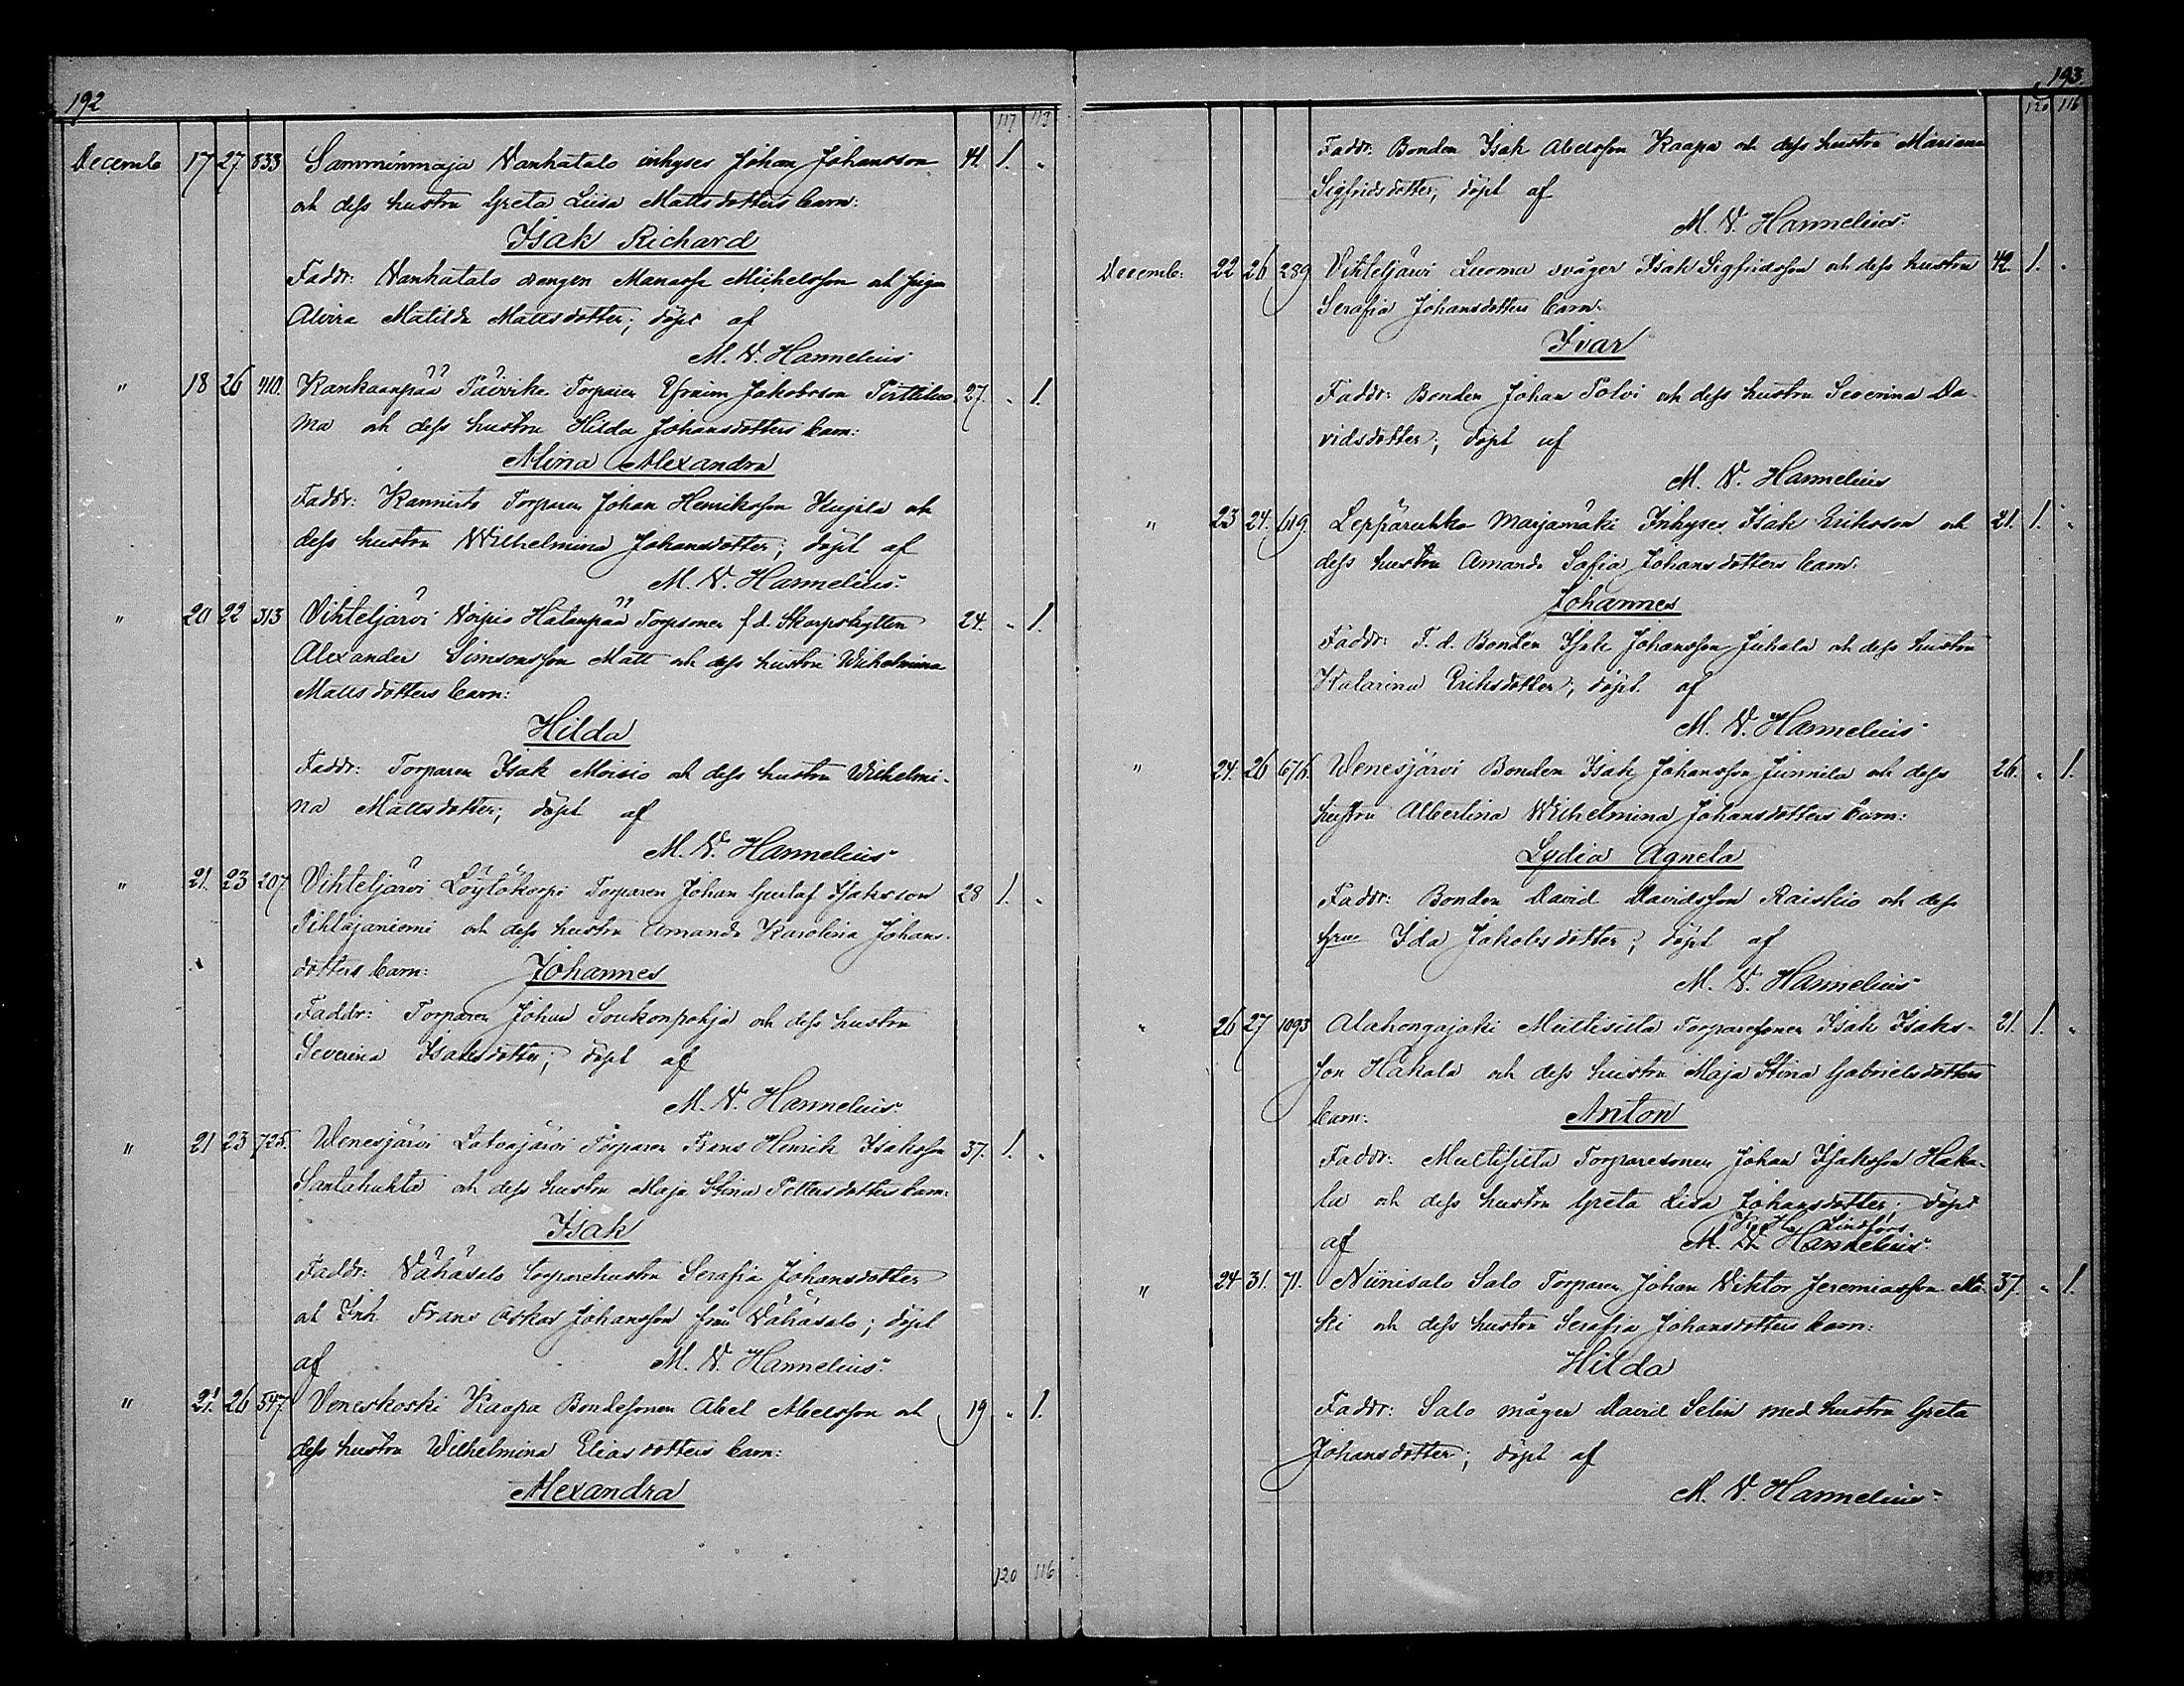 192
117 113
Decemb 17 27 833 Samminmaja Vanhatalo inhyses Johan Johansson 41. 1. "
och dess hustru Greta Liisa Mattsdotters barn:
Isak Richard
Faddr: Vanhatalo drengen Manasse Michelsson och pigan
Alvira Matilda Mattsdotter; döpt af
M. V. Hannelius
" 18 26 410. Kankaanpää Päivike Torparen Efraim Jakobsson Perttiluo- 27. " 1.
ma och dess hustru Hilda Johansdotters barn:
Mina Alexandra
Faddr: Torparen Johan Henriksson Kujila och
dess hustru Wilhelmina Johansdotter; döpt af
M. V. Hannelius.
" 20 22 313 Vihteljärvi Woipio Hatanpää Torpsonen f.d. Skarpskytten 24. " 1.
Alexander Simsonsson Matt och dess hustru Wilhelmina
Mattsdotters barn:
Hilda
Faddr: Torparen Isak Moisio och dess hustru Wilhelmi-
na Mattsdotter; döpt af
M. V. Hannelius
" 21. 23 207 Vihteljärvi Löytökorpi Torparen Johan Gustaf Isaksson 28 1. "
Pihlajaniemi och dess hustru Amanda Karolina Johans-
dotters barn: Johannes
Faddr: Torparen Johan Soukonpohja och dess hustru
Severina Isaksdotter; döpt af
M. V. Hannelius.
" 21 23 725. Wenesjärvi Latvajärvi Torparen Frans Henrik Isaksson 37. 1. "
Santahuhta och dess hustru Maja Stina Pettersdotters barn:
Isak
Faddr: Vähäsalo torparehustru Serafia Johansdotter
och Inh. Frans Oskar Johansson från Vähäsalo; döpt
af M. V. Hannelius.
" 21. 26 547. Veneskoski Kaapa Bondesonen Abel Abelsson och 19 " 1.
dess hustru Wilhelmina Eliasdotters barn:
Alexandra
120 116
193.
120 116
Faddr: Bonden Isak Abelsson Kaapa och dess hustru Mariana
Sigfridsdotter; döpt af
M. V. Hannelius.
Decemb: 22 26 289 Vihteljärvi Luoma svåger Isak Sigfridsson och dess hustru 42. 1. "
Serafia Johansdotters barn:
Ivar
Faddr: Bonden Johan Polvi och dess hustru Severina Da-
vidsdotter; döpt af
M. V. Hannelius
" 23 24. 619. Leppäruhka Marjamäki Inhyses Isak Eriksson och 21. 1. "
dess hustru Amanda Sofia Johansdotters barn:
Johannes
Faddr: F. d. Bonden Isak Johansson Juhala och dess hustru
Katarina Eriksdotter; döpt af
M. V. Hannelius
" 24. 26 676. Wenesjärvi Bonden Isak Johansson Junnila och dess 26. " 1.
hustru Albertina Wilhelmina Johansdotters barn:
Lydia Agneta
Faddr: Bonden David Davidsson Raiskio och dess
hru Ida Jakobsdotter; döpt af
M. V. Hannelius
" 26 27 1093 Alahongajoki Multisilta Torparesonen Isak Isaks- 21. 1. "
son Hakala och dess hustru Maja Stina Gabrielsdotters
barn: Anton
Faddr: Multisilta Torparesonen Johan Isaksson Haka-
la och dess hustru Greta Lisa Johansdotter; döpt
Lindfors
af M. V. Hannelius.
" 24 31. 71. Niinisalo Salo Torparen Johan Wiktor Jeremiasson Mä- 37. " 1.
ki och dess hustru Serafia Johansdotters barn:
Hilda
Faddr: Salo mågen David Selin med hustru Greta
Johansdotter; döpt af
M. V. Hannelius